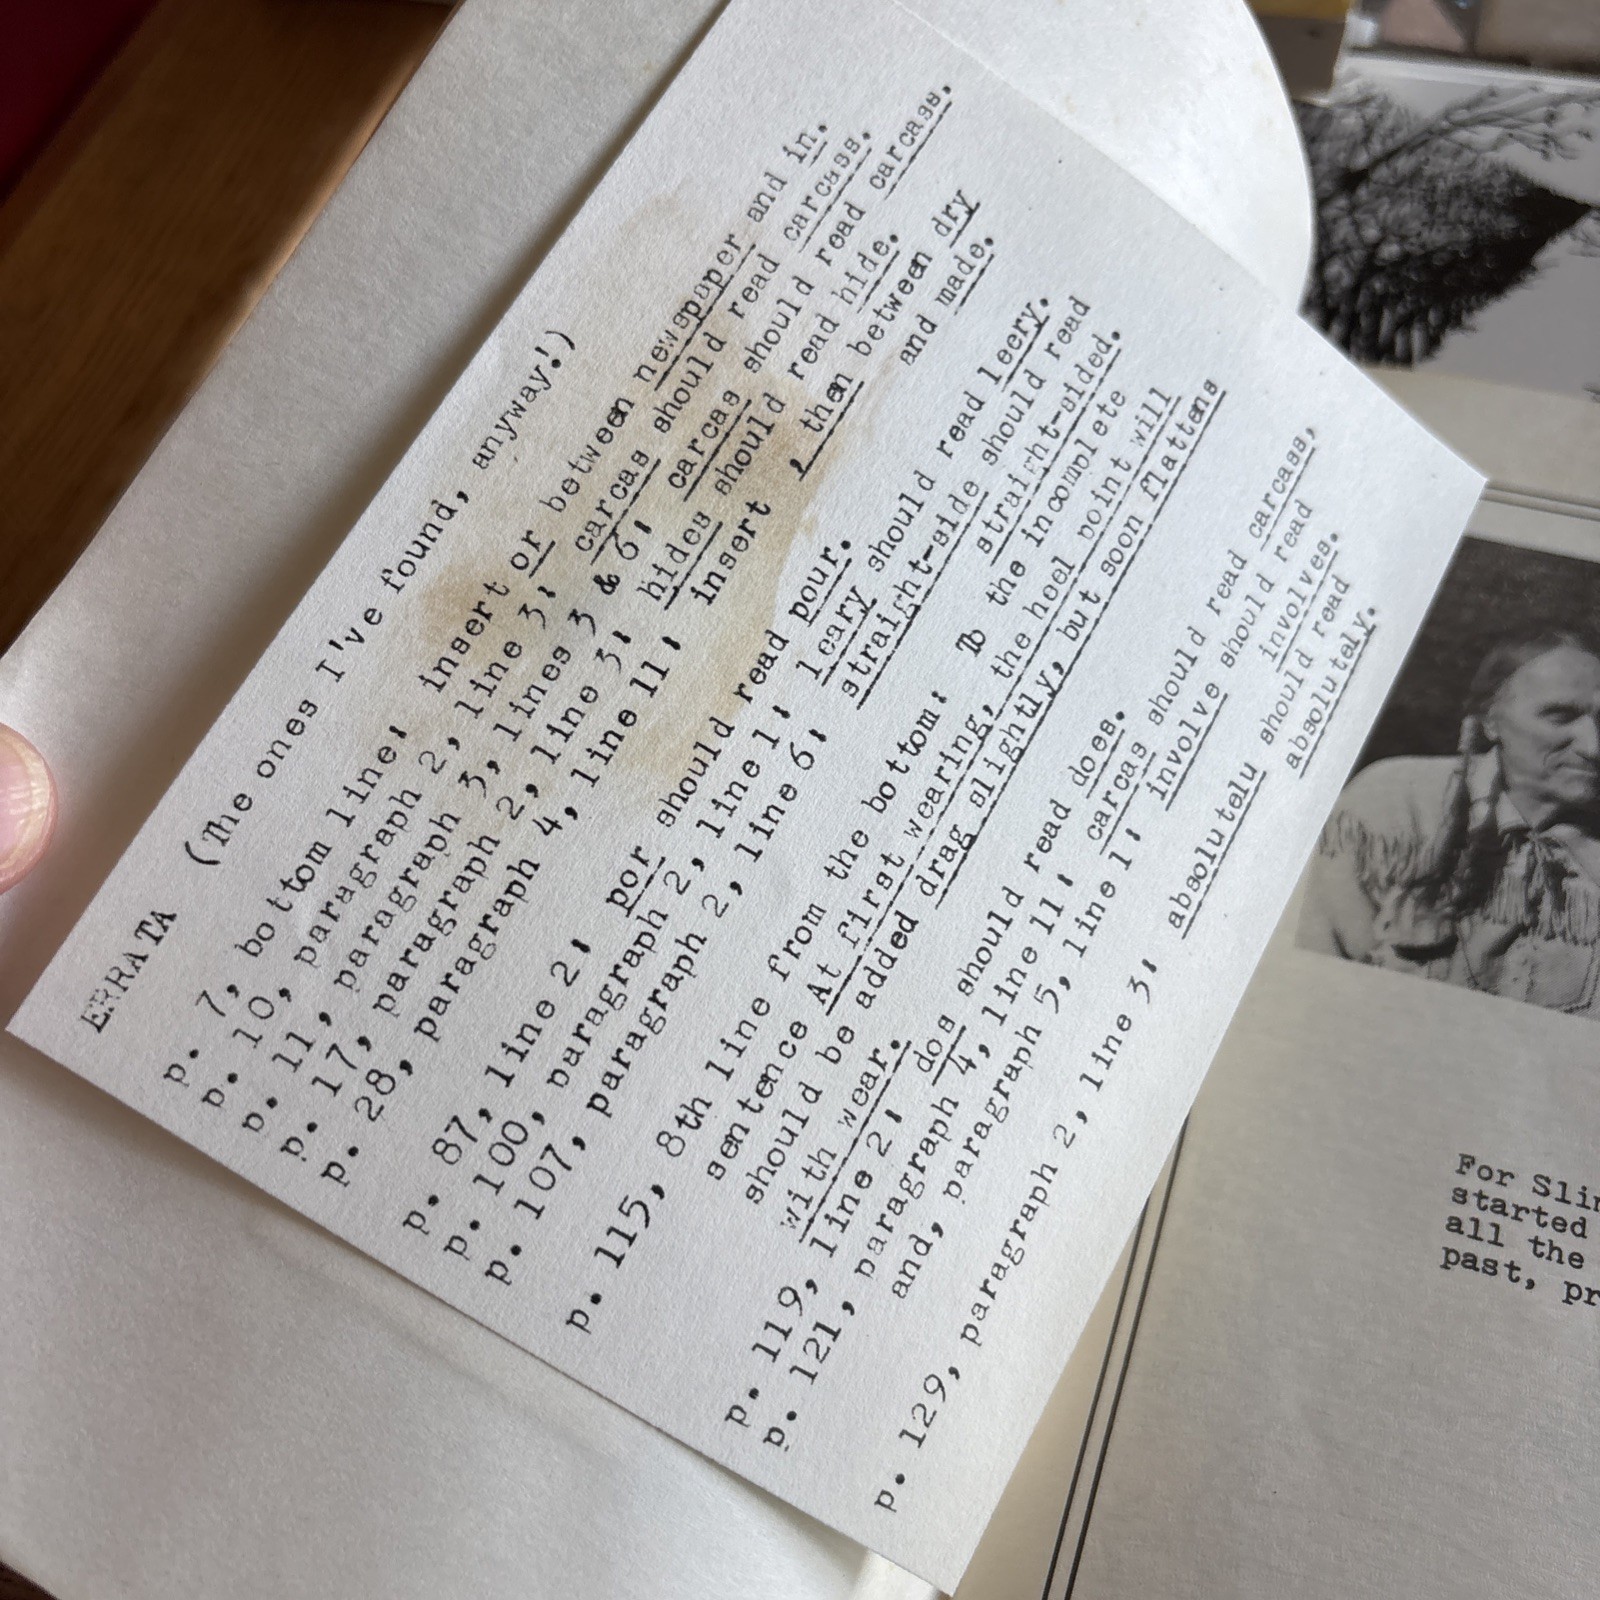 ERRATA (The ones I've found, anyway!)
p. 7, bottom line: insert or between newspaper and in.
p. 10, paragraph 2, line 3: carcas should read carcass.
p. 11, paragraph 3, lines 3 & 6: carcas should read carcass.
p. 17, paragraph 2, line 3: hides should read hide.
p. 28, paragraph 4, line 11: insert , then between dry
and made.
p. 87, line 2: por should read pour.
p. 100, paragraph 2, line 1: leary should read leery.
p. 107, paragraph 2, line 6: straight-side should read
straight-sided.
p. 115, 8th line from the bottom: To the incomplete
sentence At first wearing, the heel point will
should be added drag slightly, but soon flattens
with wear.
p. 119, line 2: dos should read does.
p. 121, paragraph 4, line 11: carcas should read carcass,
and, paragraph 5, line 1: involve should read
involves.
p. 129, paragraph 2, line 3: absolutelu should read
absolutely.
For Slim
started
all the
past, pr